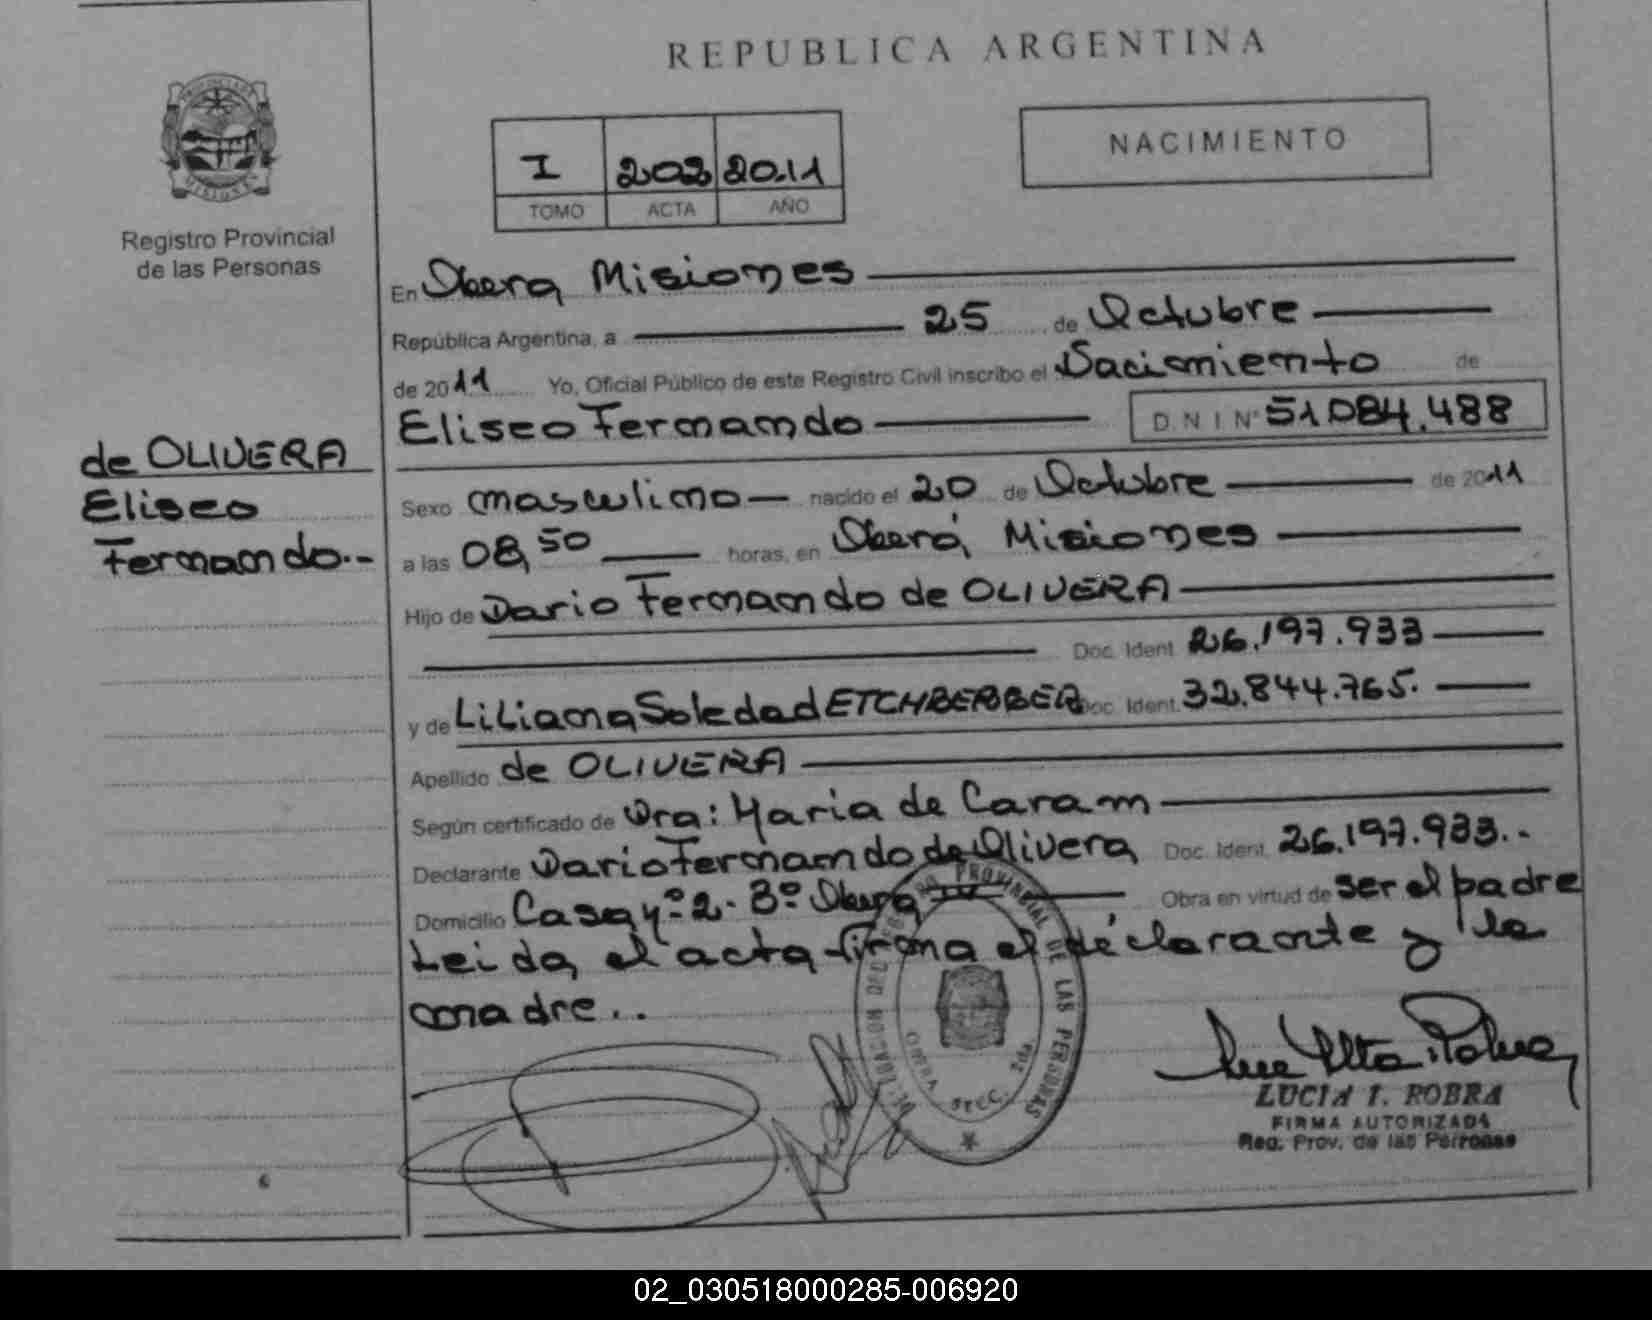 REPUBLICA ARGENTINA
NACIMIENTO
I 202 2011
TOMO ACTA AÑO
Registro Provincial
de las Personas
de OLIVERA
Eliseo
Fernando.-
En Oberá Misiones
República Argentina, a 25 de Octubre
de 2011 Yo, Oficial Público de este Registro Civil inscribo el Nacimiento de
Eliseo Fernando D.N.I Nº 51.084.488
Sexo masculino nacido el 20 de Octubre de 2011
a las 08,50 horas, en Oberá, Misiones
Hijo de Dario Fernando de OLIVERA
Doc. Ident. 26.197.933
y de Liliana Soledad ETCHBERBER Doc. Ident. 32.844.765.
Apellido de OLIVERA
Según certificado de Dra: Maria de Caram
Declarante Dario Fernando de Olivera Doc. Ident. 26.197.933..
Domicilio Casa Obera Obra en virtud de ser el padre
Leida el acta firma el declarante y la
madre..
PROVINCIAL DE LAS PERSONAS
OBERA SECC. 2da
LUCIA I. ROBRA
FIRMA AUTORIZADA
Reg. Prov. de las Personas
02_030518000285-006920